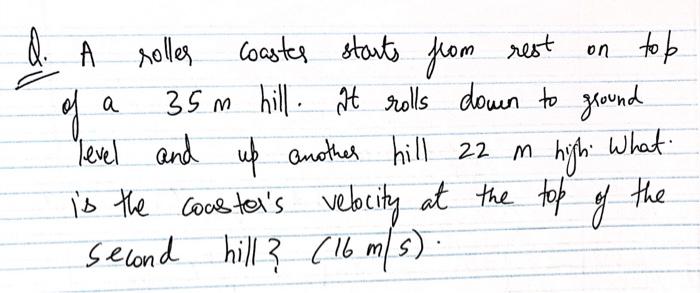 Q. A roller coaster starts from rest on top
of a 35 m hill. It rolls down to ground
level and up another hill 22 m high. What
is the coaster's velocity at the top of the
second hill? (16 m/s).